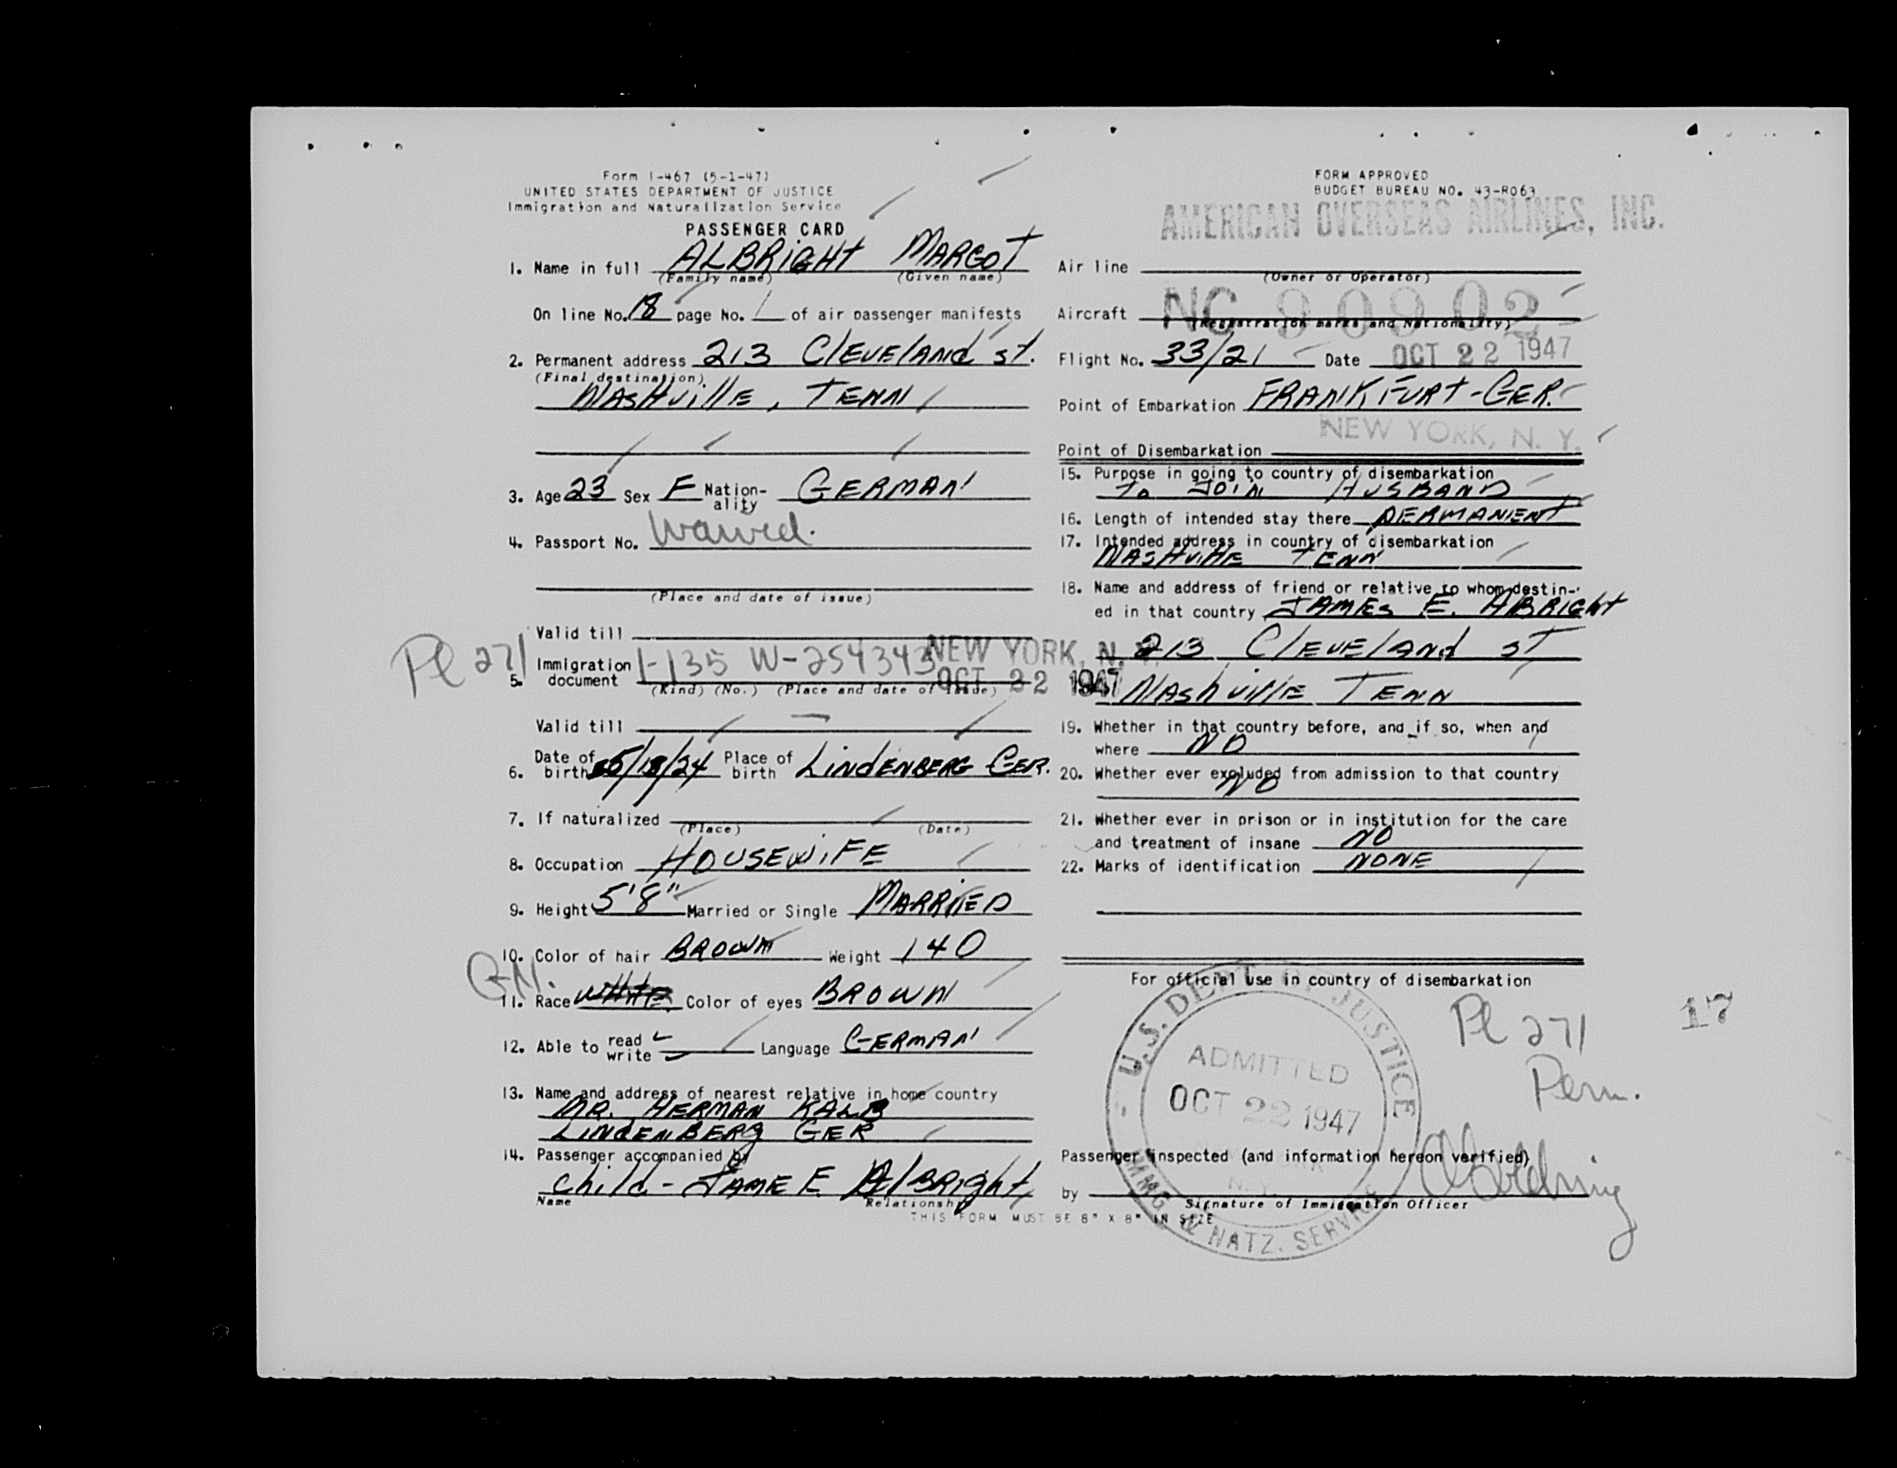 Form I-467 (5-1-47)
UNITED STATES DEPARTMENT OF JUSTICE
Immigration and Naturalization Service
PASSENGER CARD
1. Name in full ALBRIGHT MARGOT
(Family name) (Given name)
On line No. 18 page No. 1 of air passenger manifests
2. Permanent address 213 Cleveland st.
(Final destination)
NASHville, TENN
3. Age 23 Sex F Nation-ality GERMAN
4. Passport No. Waived.
(Place and date of issue)
Valid till
Pl 271
5. Immigration document I-135 W-254343 NEW YORK, N.Y.
(Kind) (No.) (Place and date of issue) OCT 22 1947
Valid till
6. Date of birth 5/18/24 Place of birth LINDENBERG GER.
7. If naturalized
(Place) (Date)
8. Occupation HOUSEWIFE
9. Height 5'8" Married or Single MARRIED
10. Color of hair BROWN Weight 140
11. Race WHITE Color of eyes BROWN
12. Able to read write Language GERMAN
13. Name and address of nearest relative in home country
MR. HERMAN KALB
LINDENBERG GER
14. Passenger accompanied by
child - JAME E AlBRIGHT
Name Relationship
THIS FORM MUST BE 8" X 8" IN SIZE
FORM APPROVED
BUDGET BUREAU NO. 43-R063
AMERICAN OVERSEAS AIRLINES, INC.
Air line
(Owner or Operator)
Aircraft NC 90902
(Registration marks and Nationality)
Flight No. 33/21 Date OCT 22 1947
Point of Embarkation FRANKFURT-GER.
NEW YORK, N. Y.
Point of Disembarkation
15. Purpose in going to country of disembarkation
To JOIN HUSBAND
16. Length of intended stay there PERMANENT
17. Intended address in country of disembarkation
NASHville TENN
18. Name and address of friend or relative to whom destin-
ed in that country JAMES E. AlBRIGHT
213 Cleveland ST
NAShville TENN
19. Whether in that country before, and if so, when and
where NO
20. Whether ever excluded from admission to that country
NO
21. Whether ever in prison or in institution for the care
and treatment of insane NO
22. Marks of identification NONE
For official use in country of disembarkation
U.S. DEPT. OF JUSTICE
ADMITTED
OCT 22 1947
N.Y.
IMMG. & NATZ. SERVICE
Pl 271
Perm.
17
Passenger inspected (and information hereon verified)
by
Signature of Immigration Officer